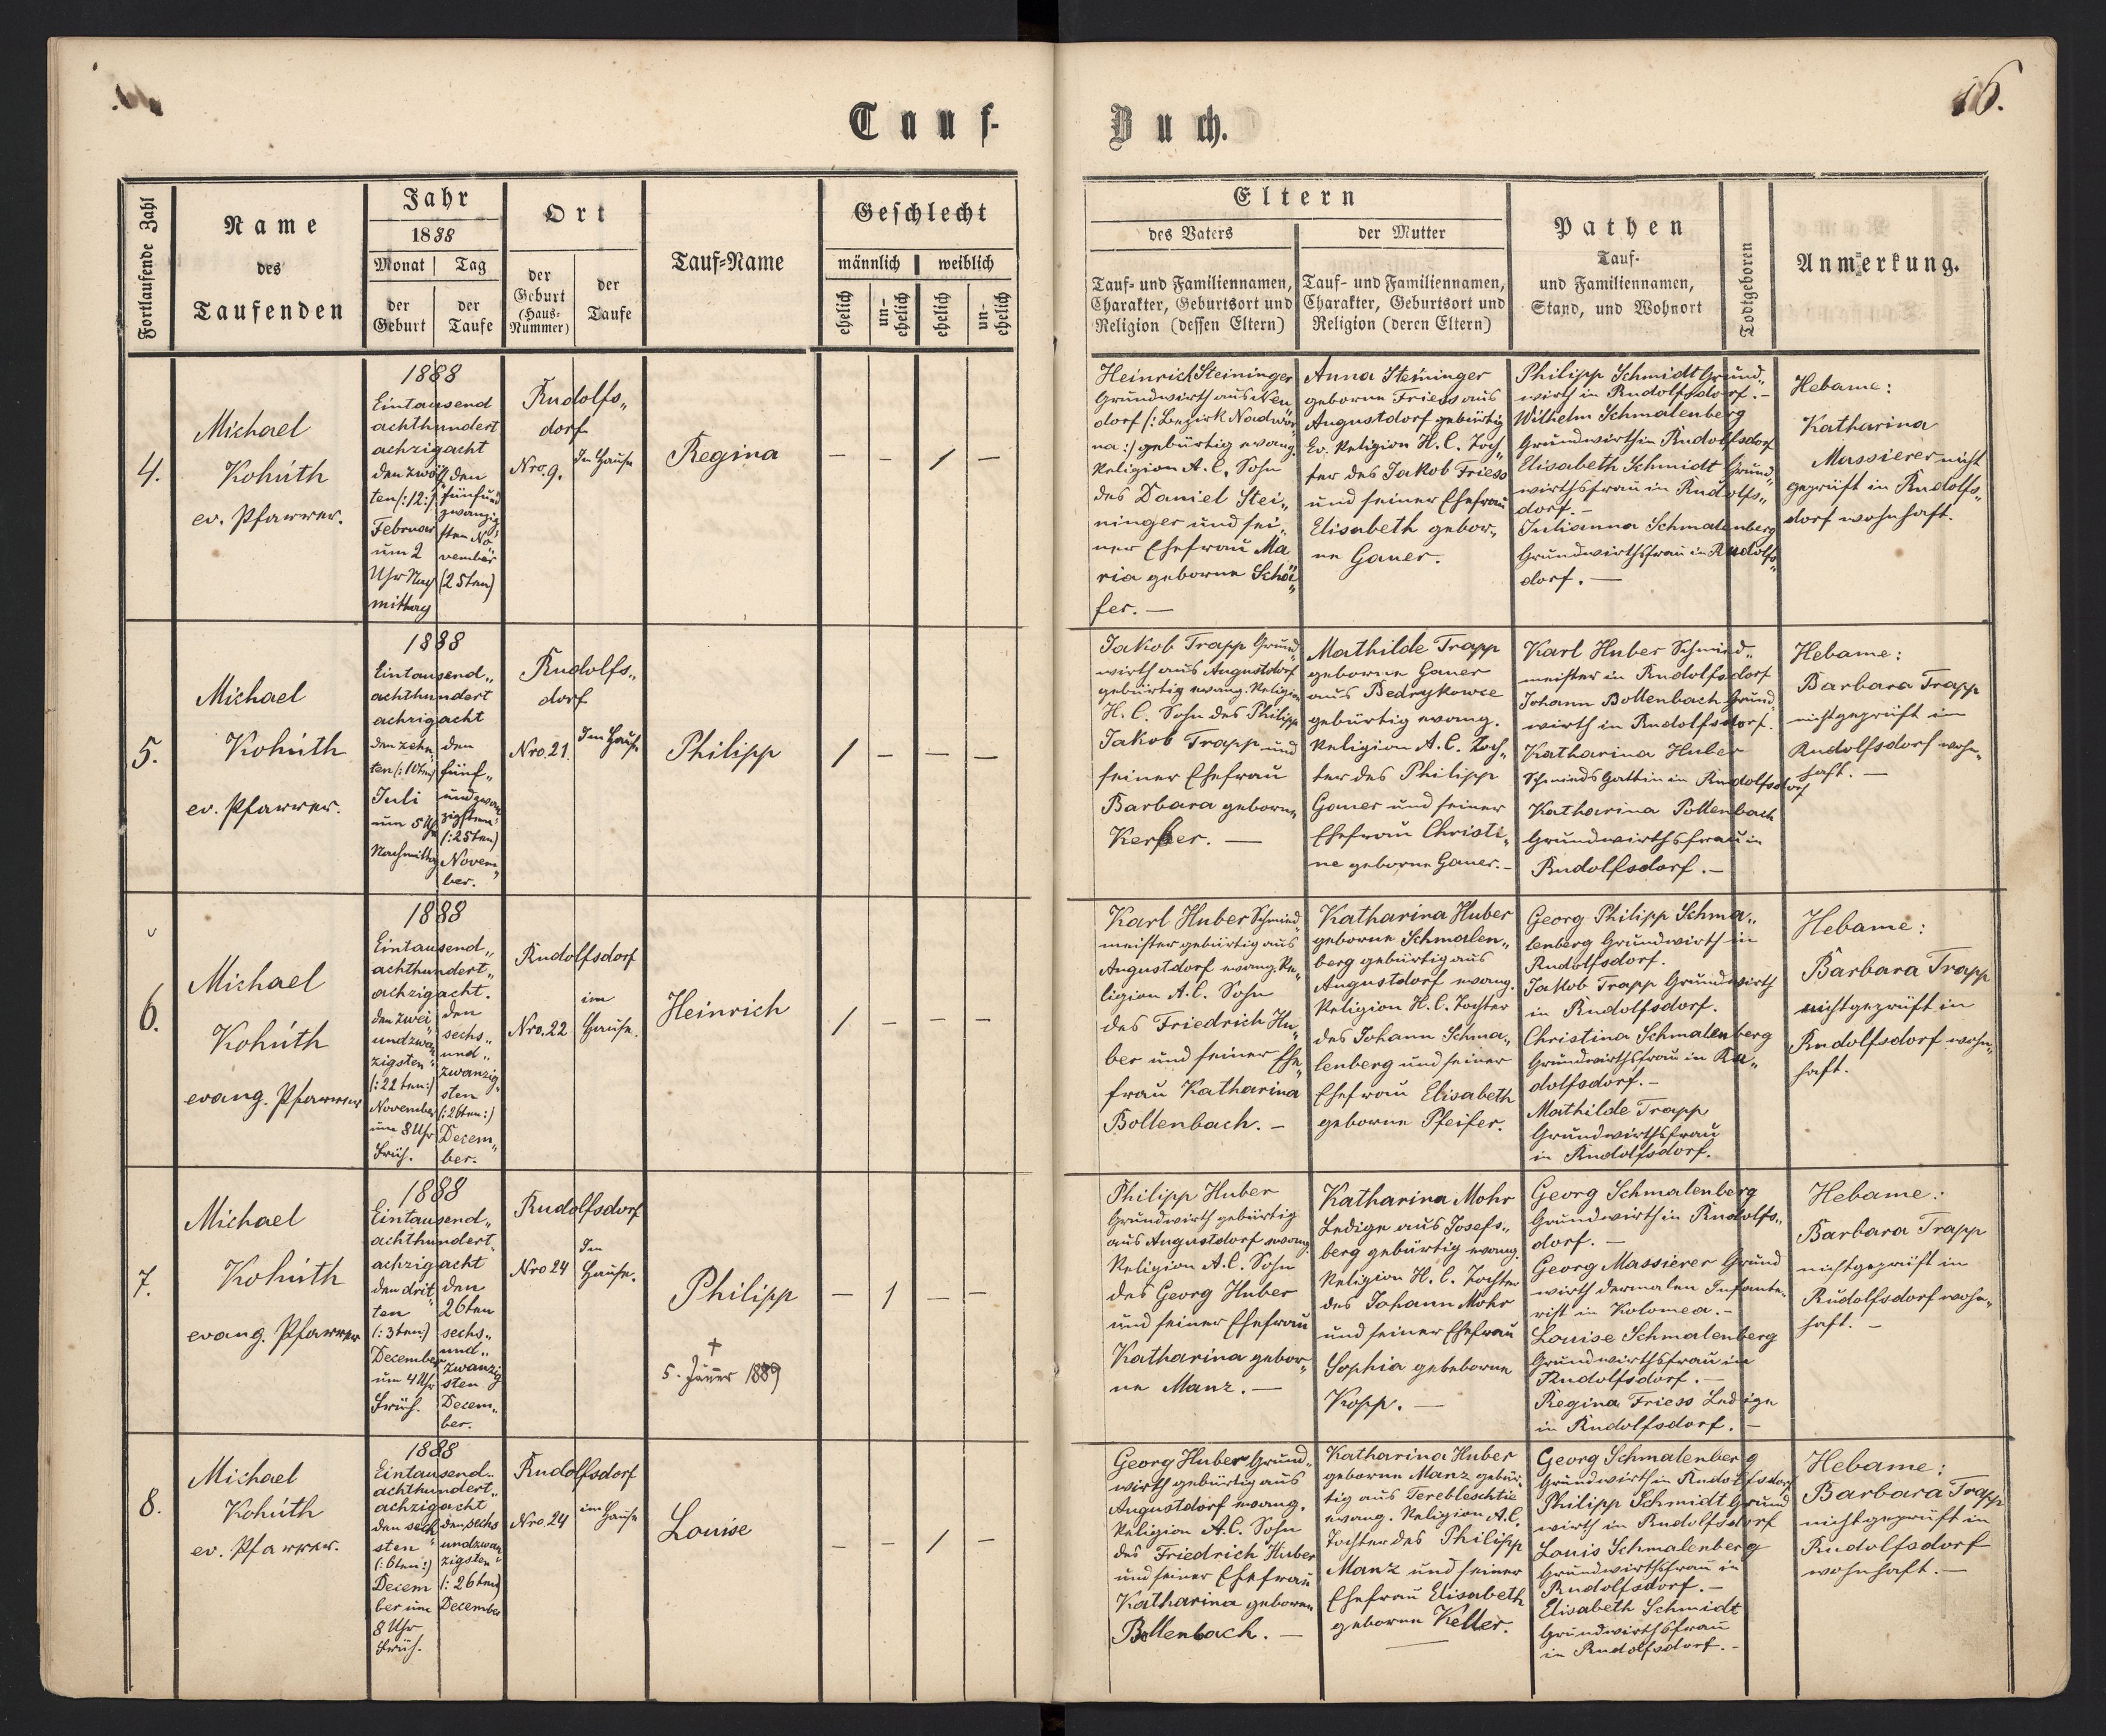 Tauf-
Buch.
16.
Fortlaufende Zahl
Name
des
Taufenden
Jahr
1888
Monat
Tag
der
Geburt
der
Taufe
Ort
der
Geburt
(Haus-
Nummer)
der
Taufe
Tauf=Name
Geschlecht
männlich
weiblich
ehelich
un-
ehelich
ehelich
un-
ehelich
Eltern
des Vaters
der Mutter
Tauf= und Familiennamen,
Charakter, Geburtsort und
Religion (dessen Eltern)
Tauf= und Familiennamen,
Charakter, Geburtsort und
Religion (deren Eltern)
Pathen
Tauf-
und Familiennamen,
Stand, und Wohnort
Todtgeboren
Anmerkung.
4.
Michael
Kohúth
ev. Pfarrer.
1888
Eintausend
achthundert
achzigacht
den zwölf„
ten (:12:)
Februar
um 2
Uhr Nach
mittag
den
fünfund
zwanzig
sten No„
vember
(25ten)
Rudolfs„
dorf
Nro. 9.
Im Hause
Regina
— — 1 —
Heinrich Steininger
Grundwirth aus Neu„
dorf (: Bezirk Nadwór„
na :) gebürtig evang.
Religion A. C. Sohn
des Daniel Stei„
ninger und sei„
ner Ehefrau Ma
ria geborne Schäi„
fer. —
Anna Steininger
geborne Friess aus
Augustdorf gebürtig
Ev. Religion H. C. Toch„
ter des Jakob Friess
und seiner Ehefrau
Elisabeth gebor„
ne Gauer.
Philipp Schmidt Grund„
wirth in Rudolfsdorf. —
Wilhelm Schmalenberg
Grundwirth in Rudolfsdorf
Elisabeth Schmidt Grund„
wirthsfrau in Rudolfs„
dorf. —
Julianna Schmalenberg
Grundwirthsfrau in Rudolfs„
dorf. —
Hebame:
Katharina
Massierer nicht
geprüft in Rudolfs„
dorf wohnhaft.
5.
Michael
Kohúth
ev. Pfarrer.
1888
Eintausend„
achthundert
achzigacht
den zehn„
ten (:10ten)
Juli
um 5 Uhr
Nachmittag
den
fünf„
undzwan
zigsten
(:25ten)
Novem„
ber.
Rudolfs„
dorf
Nro. 21.
Im Hause
Philipp
1 — — —
Jakob Trapp Grund„
wirth aus Augustdorf
gebürtig evang. Religion
H. C. Sohn des Philipp
Jakob Trapp und
seiner Ehefrau
Barbara geborne„
Kerber. —
Mathilde Trapp
geborne Gauer
aus Bedrykowce
gebürtig evang.
Religion A. C. Toch„
ter des Philipp
Gauer und seiner
Ehefrau Christi„
ne geborne Gauer. —
Karl Huber Schmied„
meister in Rudolfsdorf
Johann Bollenbach Grund„
wirth in Rudolfsdorf.
Katharina Huber
Schmieds Gattin in Rudolfsdorf
Katharina Pollenbach
Grundwirthsfrau in
Rudolfsdorf. —
Hebame:
Barbara Trapp
nicht geprüft in
Rudolfsdorf wohn„
haft. —
6.
Michael
Kohúth
evang. Pfarrer
1888
Eintausend„
achthundert„
achzigacht.
den zwei„
undzwan
zigsten
(:22ten:)
November
um 8 Uhr
Früh.
den
sechs„
und„
zwanzig„
sten
(:26ten:)
Decem„
ber.
Rudolfsdorf
Nro. 22
im
Hause.
Heinrich
1 — — —
Karl Huber Schmied„
meister gebürtig aus
Augustdorf evang. Re„
ligion A. C. Sohn
des Friedrich Hu„
ber und seiner Ehe„
frau Katharina
Bollenbach. —
Katharina Huber
geborne Schmalen„
berg gebürtig aus
Augustdorf evang.
Religion H. C. Tochter
des Johann Schma„
lenberg und seiner
Ehefrau Elisabeth
geborne Pfeifer.
Georg Philipp Schma„
lenberg Grundwirth in
Rudolfsdorf.
Jakob Trapp Grundwirth
in Rudolfsdorf.
Christina Schmalenberg
Grundwirthsfrau in Ru„
dolfsdorf. —
Mathilde Trapp
Grundwirthsfrau
in Rudolfsdorf.
Hebame:
Barbara Trapp
nicht geprüft in
Rudolfsdorf wohn„
haft.
7.
Michael
Kohúth
evang. Pfarrer
1888
Eintausend„
achthundert„
achzigacht
den drit„
ten
(:3ten:)
December
um 4 Uhr
Früh.
den
26ten
sechs„
und„
zwanzig
sten
Decem„
ber.
Rudolfsdorf
Nro 24
Im
Hause.
Philipp
†
5. Jänner 1889
— 1 — —
Philipp Huber
Grundwirth gebürtig
aus Augustdorf evang.
Religion A. C. Sohn
des Georg Huber
und seiner Ehefrau
Katharina gebor„
ne Manz. —
Katharina Mohr
Ledige aus Josefs„
berg gebürtig evang.
Religion H. C. Tochter
des Johann Mohr
und seiner Ehefrau
Sophia gebeborne
Kopp. —
Georg Schmalenberg
Grundwirth in Rudolfs„
dorf. —
Georg Massierer Grund
wirth dermalen Infante„
rist in Kolomea. —
Louise Schmalenberg
Grundwirthsfrau in
Rudolfsdorf. —
Regina Friess Ledige
in Rudolfsdorf. —
Hebame:
Barbara Trapp
nicht geprüft in
Rudolfsdorf wohn„
haft. —
8.
Michael
Kohúth
ev. Pfarrer.
1888
Eintausend„
achthundert„
achzigacht
den sech„
sten
(:6ten:)
Decem
ber um
8 Uhr
Früh.
den sechs
undzwan
zigsten
(:26ten)
December
Rudolfsdorf
Nro. 24
im Hause
Louise
— — 1 —
Georg Huber Grund„
wirth gebürtig aus
Augustdorf evang.
Religion A. C. Sohn
des Friedrich Huber
und seiner Ehefrau
Katharina geborne
Bollenbach. —
Katharina Huber
geborne Manz gebür„
tig aus Terebleschtie
evang. Religion A. C.
Tochter des Philipp
Manz und seiner
Ehefrau Elisabeth
geborne Keller.
Georg Schmalenberg
Grundwirth in Rudolfsdorf
Philipp Schmidt Grund
wirth in Rudolfsdorf
Louis Schmalenberg
Grundwirthsfrau in
Rudolfsdorf. —
Elisabeth Schmidt
Grundwirthsfrau
in Rudolfsdorf. —
Hebame:
Barbara Trapp
nicht geprüft in
Rudolfsdorf
wohnhaft. —